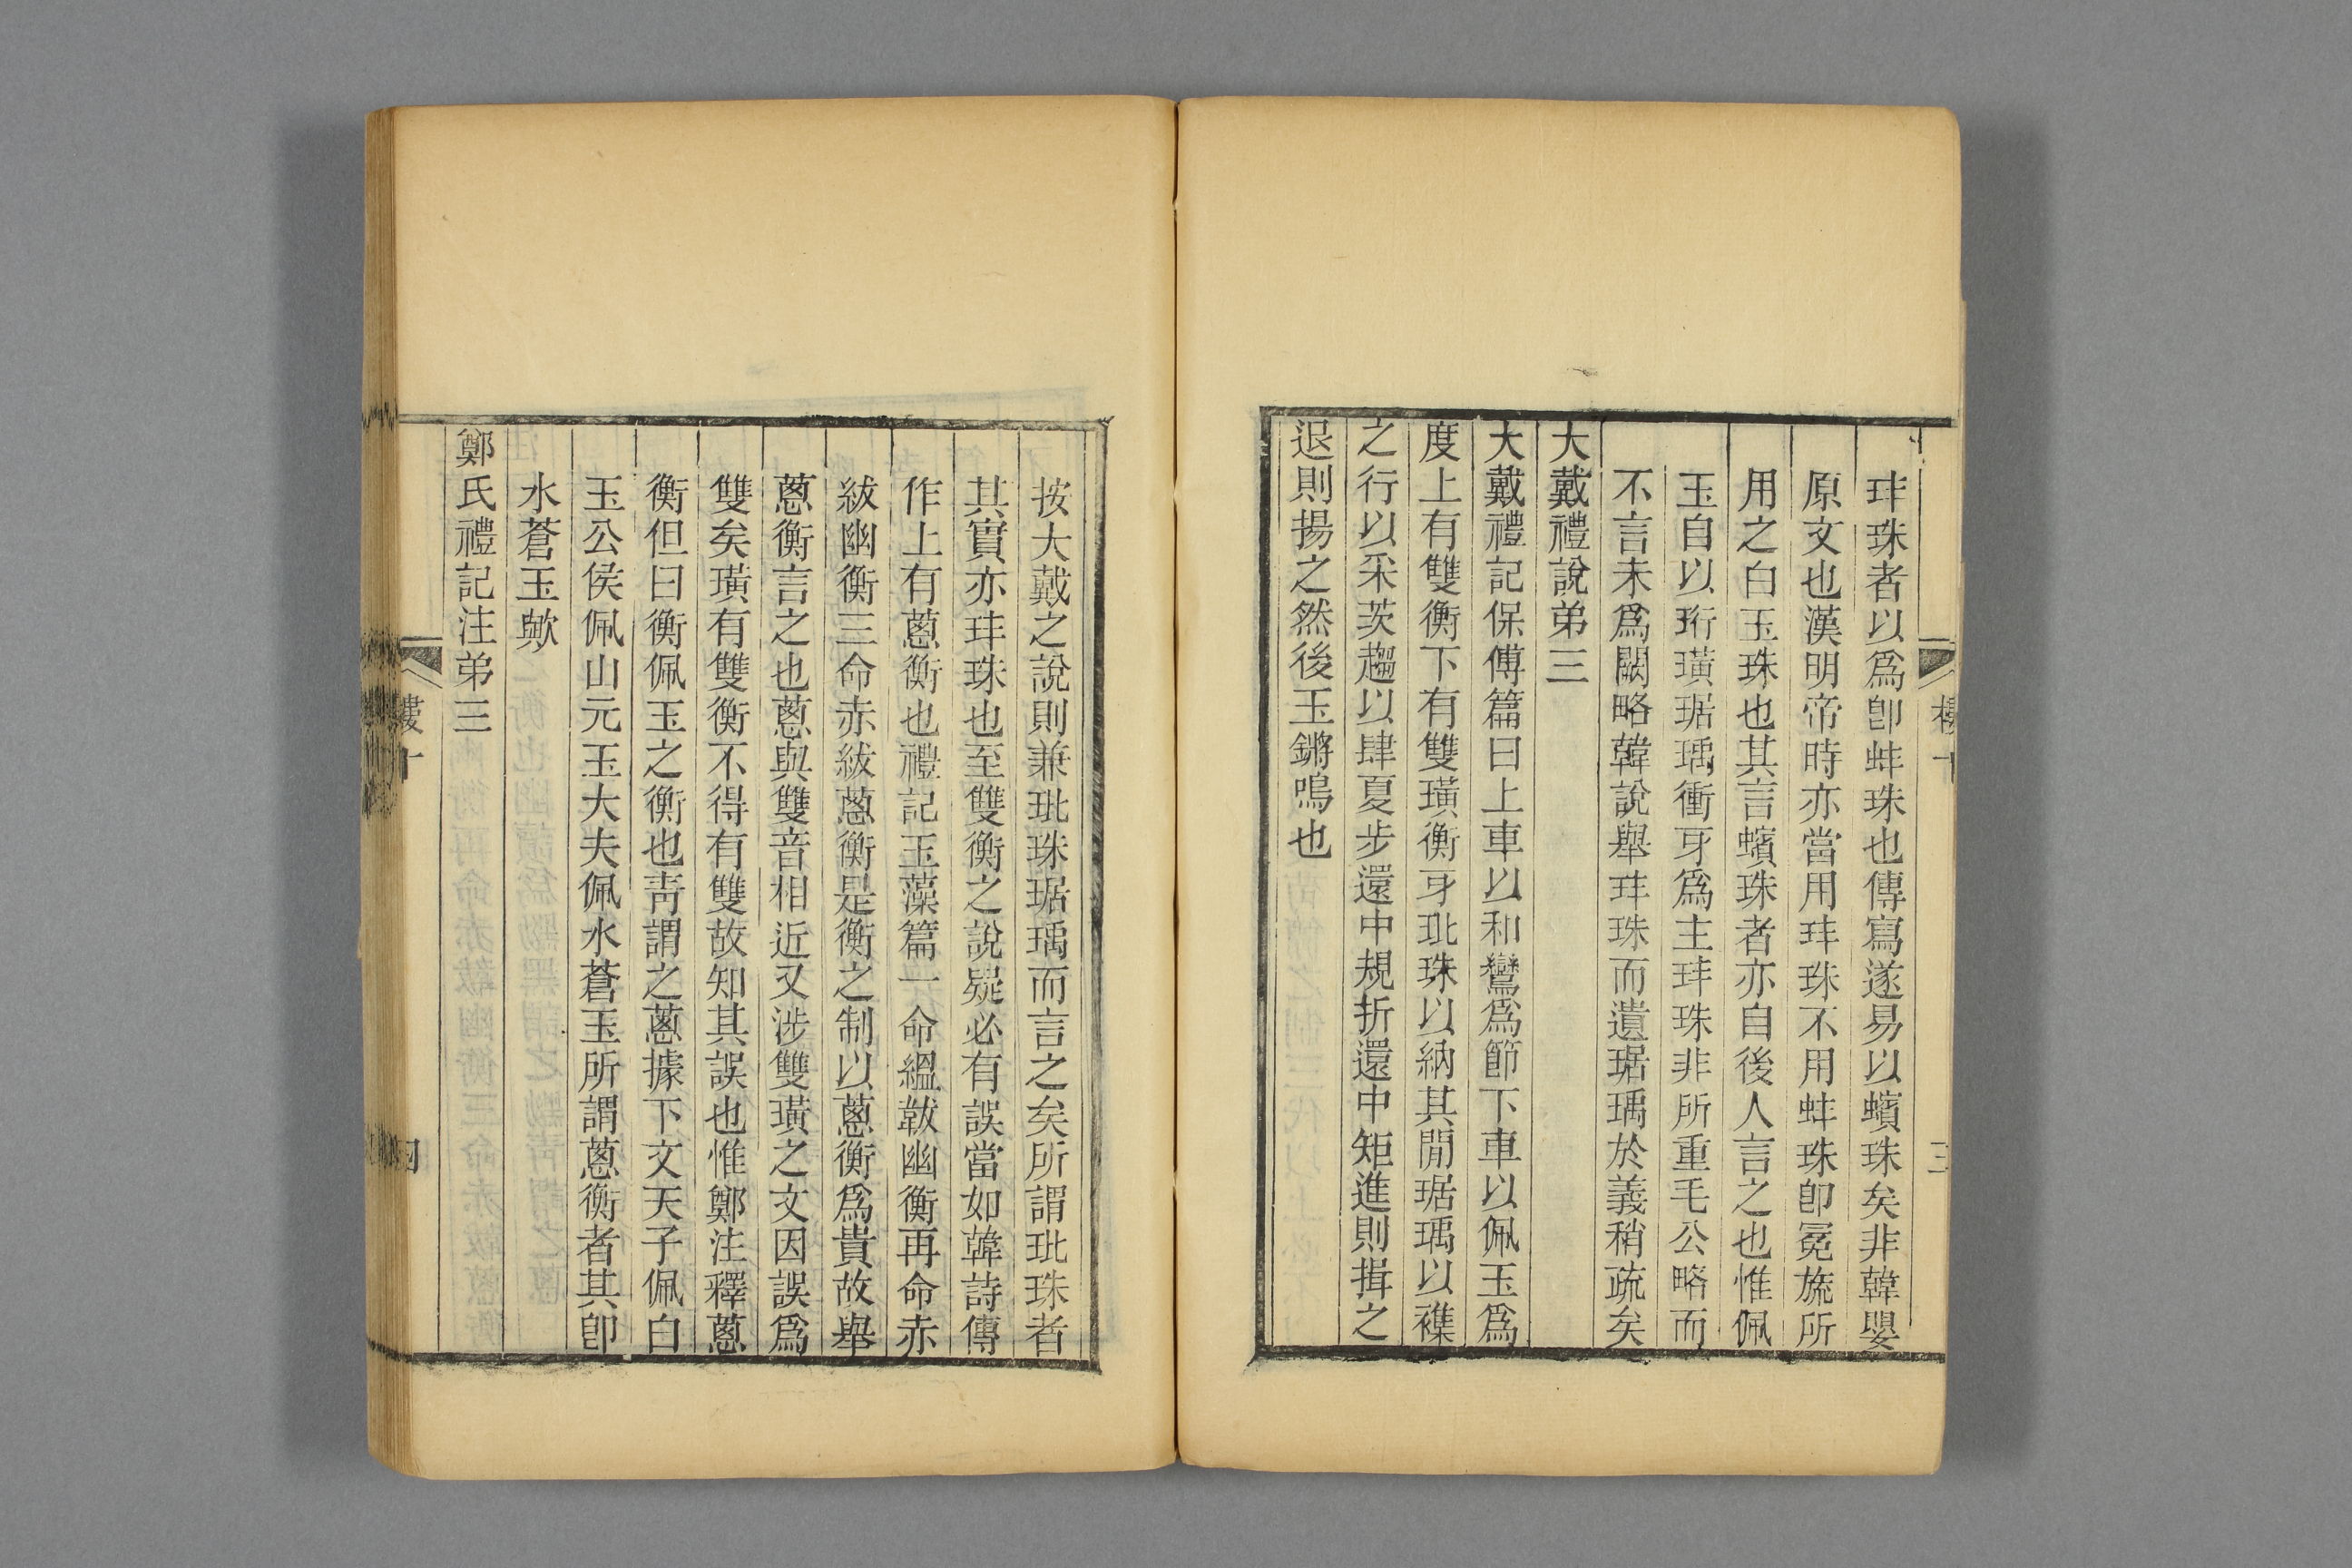 玤珠者以爲卽蚌珠也傳寫遂易以蠙珠矣非韓嬰
原文也漢明帝時亦當用玤珠不用蚌珠卽冕旒所
用之白玉珠也其言蠙珠者亦自後人言之也惟佩
玉自以珩璜琚瑀衝牙爲主玤珠非所重毛公略而
不言未爲闕略韓說舉玤珠而遺琚瑀於義稍疏矣
大戴禮說弟三
大戴禮記保傅篇曰上車以和鸞爲節下車以佩玉爲
度上有雙衡下有雙璜衡牙玭珠以納其閒琚瑀以襍
之行以采茨趨以肆夏步還中規折還中矩進則揖之
退則揚之然後玉鏘鳴也
三
按大戴之說則兼玭珠琚瑀而言之矣所謂玭珠者
其實亦玤珠也至雙衡之說疑必有誤當如韓詩傳
作上有蔥衡也禮記玉藻篇一命縕韍幽衡再命赤
紱幽衡三命赤紱蔥衡是衡之制以蔥衡爲貴故舉
蔥衡言之也蔥與雙音相近又涉雙璜之文因誤爲
雙矣璜有雙衡不得有雙故知其誤也惟鄭注釋蔥
衡但曰衡佩玉之衡也靑謂之蔥據下文天子佩白
玉公侯佩山元玉大夫佩水蒼玉所謂蔥衡者其卽
水蒼玉歟
鄭氏禮記注弟三
樓十
四